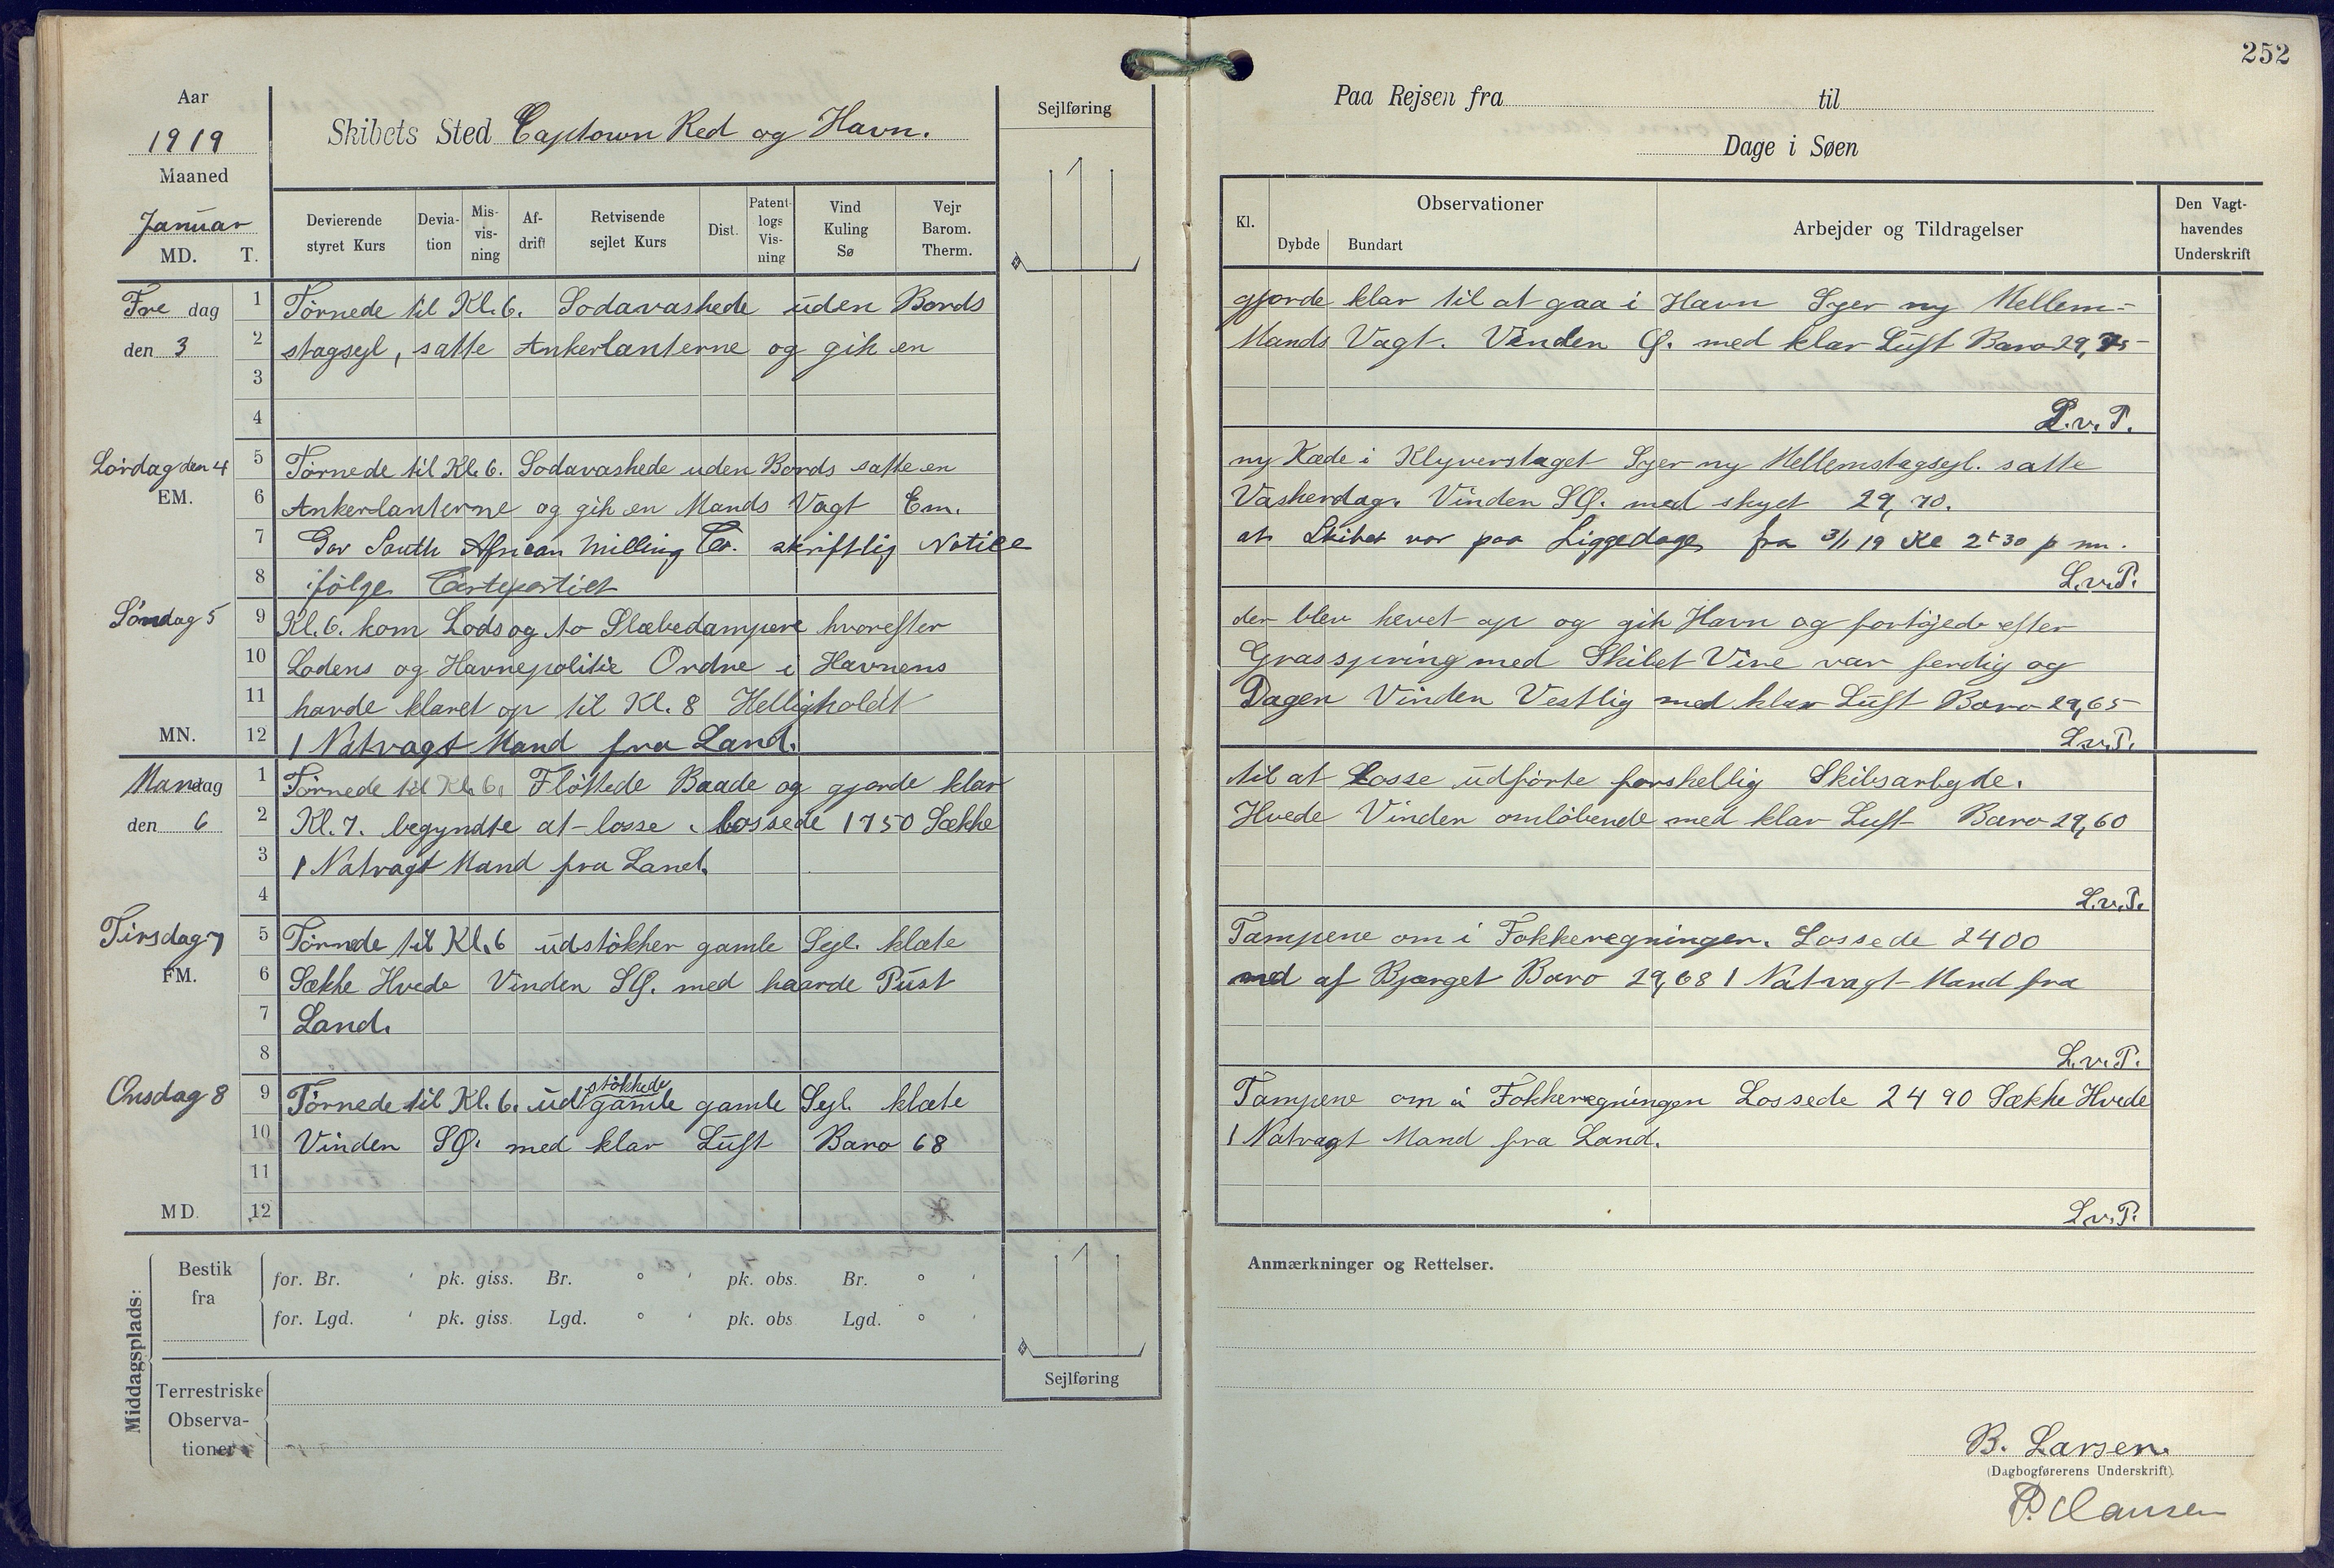 252
Aar
1919
Maaned
Januar
MD. T.
Skibets Sted Captown Red og Havn.
Sejlføring
Paa Rejsen fra til
Dage i Søen
Devierende styret Kurs
Devia-tion
Mis-vis-ning
Af-drift
Retvisende sejlet Kurs
Dist.
Patent-logs Vis-ning
Vind Kuling Sø
Vejr Barom. Therm.
Kl.
Observationer
Dybde Bundart
Arbejder og Tildragelser
Den Vagt-havendes Underskrift
Fre dag 1 Törnede til Kl. 6. Sodavaskede uden Bords gjorde klar til at gaa i Havn Syer ny Mellem=
den 3 2 stagsejl, satte Ankerlanterne og gik en Mands Vagt. Vinden Ø. med klar Luft Baro 29,75
3
4 L.v.P.
Lördag den 4 5 Törnede til Kl. 6. Sodavaskede uden Bords satte en ny Kæde i Klyverstaget Syer ny Mellemstagsejl. satte
EM. 6 Ankerlanterne og gik en Mands Vagt Em. Vaskerdag. Vinden SØ. med skyet 29,70.
7 Gav South African Milling Co. skriftlig Notice at Skibet var paa Liggedage fra 3/1 19 Kl 2 30 p m.
8 ifölge Certepartiet L.v.P.
Söndag 5 9 Kl. 6. kom Lods og to Slæbedampere hvorefter der blev hevet op og gik Havn og fortöjede efter
10 Lodens og Havnepolitie Ordre i Havnens Grasspring med Skibet Vire var ferdig og
11 havde klaret op til Kl. 8 Helligholdt Dagen Vinden Vestlig med klar Luft Baro 29,65
MN. 12 1 Natvagt Mand fra Land. L.v.P.
Mandag 1 Törnede til Kl. 6. Flöttede Baade og gjorde klar til at Losse udförte forskellig Skibsarbejde.
den 6 2 Kl. 7. begyndte at losse. Lossede 1750 Sække Hvede Vinden omlöbende med klar Luft Baro 29,60
3 1 Natvagt Mand fra Land.
4 L.v.P.
Tirsdag 7 5 Törnede til Kl. 6 udstökker gamle Sejl. klæte Tampene om i Fokkeregningen. Lossede 2400
FM. 6 Sække Hvede Vinden SØ. med haarde Pust ned af Bjerget Baro 29,68 1 Natvagt Mand fra
7 Land.
8 L.v.P.
stökkede
Onsdag 8 9 Törnede til Kl. 6. ud gamle gamle Sejl. klæte Tampene om i Fokkeregningen Lossede 2490 Sække Hvede
10 Vinden SØ. med klar Luft Baro 68 1 Natvagt Mand fra Land.
11
MD. 12 L.v.P.
Middagsplads:
Bestik fra
for. Br. ' pk. giss. Br. ° ' pk. obs. Br. ° '
for. Lgd. ' pk. giss. Lgd. ° ' pk. obs. Lgd. ° '
Sejlføring
Terrestriske Observa-tioner
Anmærkninger og Rettelser.
B. Larsen.
(Dagbogførerens Underskrift).
P. Clausen